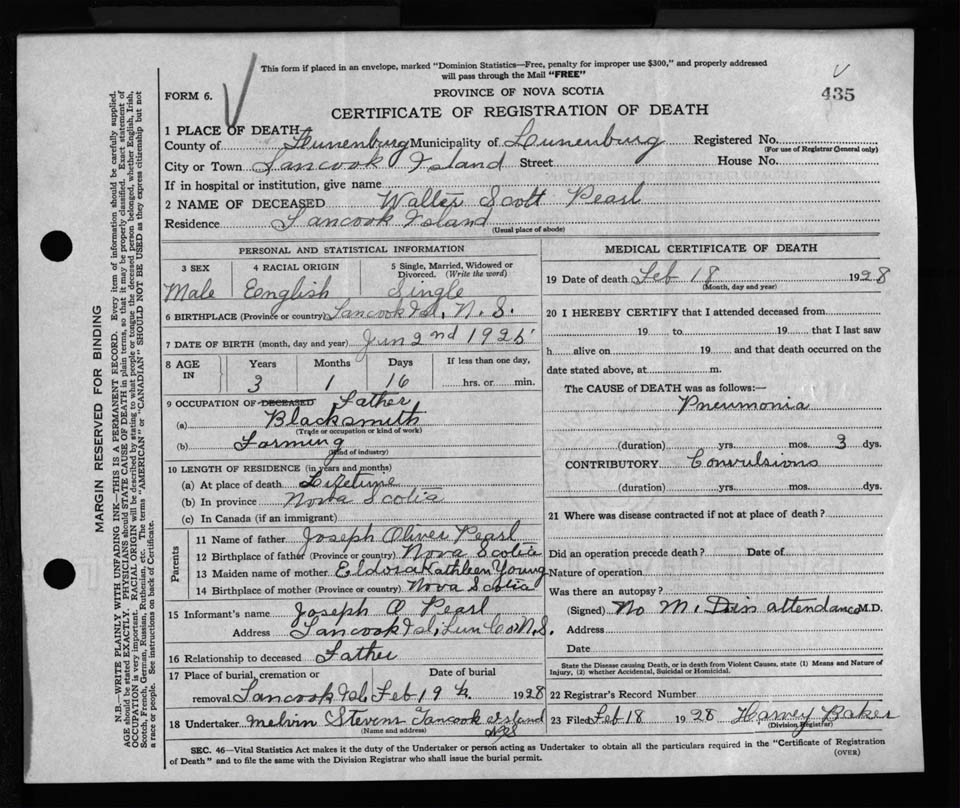 This form if placed in an envelope, marked "Dominion Statistics—Free, penalty for improper use $300," and properly addressed
will pass through the Mail "FREE"
FORM 6.
PROVINCE OF NOVA SCOTIA
435
CERTIFICATE OF REGISTRATION OF DEATH
1 PLACE OF DEATH
County of Lunenburg Municipality of Lunenburg Registered No.
(For use of Registrar General only)
City or Town Tancook Island Street House No.
If in hospital or institution, give name
2 NAME OF DECEASED Walter Scott Pearl
Residence Tancook Island
(Usual place of abode)
PERSONAL AND STATISTICAL INFORMATION
3 SEX Male
4 RACIAL ORIGIN English
5 Single, Married, Widowed or Divorced. (Write the word) Single
6 BIRTHPLACE (Province or country) Tancook Isl, N. S.
7 DATE OF BIRTH (month, day and year) Jun 2nd 1925
8 AGE IN Years 3 Months 1 Days 16 If less than one day, hrs. or min.
9 OCCUPATION OF DECEASED Father
(a) Blacksmith
(Trade or occupation or kind of work)
(b) Farming
(Kind of industry)
10 LENGTH OF RESIDENCE (in years and months)
(a) At place of death Lifetime
(b) In province Nova Scotia
(c) In Canada (if an immigrant)
Parents
11 Name of father Joseph Oliver Pearl
12 Birthplace of father (Province or country) Nova Scotia
13 Maiden name of mother Eldora Kathleen Young
14 Birthplace of mother (Province or country) Nova Scotia
15 Informant's name Joseph O Pearl
Address Tancook Isl, Lun Co N.S.
16 Relationship to deceased Father
17 Place of burial, cremation or Date of burial
removal Tancook Isl Feb 19th 1928
18 Undertaker Melvin Stevens Tancook Island
(Name and address) NS
MEDICAL CERTIFICATE OF DEATH
19 Date of death Feb 18 1928
(Month, day and year)
20 I HEREBY CERTIFY that I attended deceased from
19 to 19 that I last saw
h alive on 19 and that death occurred on the
date stated above, at m.
The CAUSE of DEATH was as follows:—
Pneumonia
(duration) yrs. mos. 3 dys.
CONTRIBUTORY Convulsions
(duration) yrs. mos. dys.
21 Where was disease contracted if not at place of death?
Did an operation precede death? Date of
Nature of operation
Was there an autopsy?
(Signed) No M. D in attendance M.D.
Address
Date
State the Disease causing Death, or in death from Violent Causes, state (1) Means and Nature of
Injury, (2) whether Accidental, Suicidal or Homicidal.
22 Registrar's Record Number
23 Filed Feb 18 1928 Harvey Baker
(Division Registrar)
SEC. 46—Vital Statistics Act makes it the duty of the Undertaker or person acting as Undertaker to obtain all the particulars required in the "Certificate of Registration
of Death" and to file the same with the Division Registrar who shall issue the burial permit.
(OVER)
MARGIN RESERVED FOR BINDING
N.B.—WRITE PLAINLY, WITH UNFADING INK—THIS IS A PERMANENT RECORD. Every item of information should be carefully supplied.
AGE should be stated EXACTLY. PHYSICIANS should STATE CAUSE OF DEATH in plain terms, so that it may be properly classified. Exact statement of
OCCUPATION is very important. RACIAL ORIGIN will be described by stating to what people or tongue the deceased person belonged, whether English, Irish,
Scotch, French, German, Russian, Ruthenian, etc. The terms "AMERICAN" or "CANADIAN" SHOULD NOT BE USED as they express citizenship but not
a race or people. See instructions on back of Certificate.